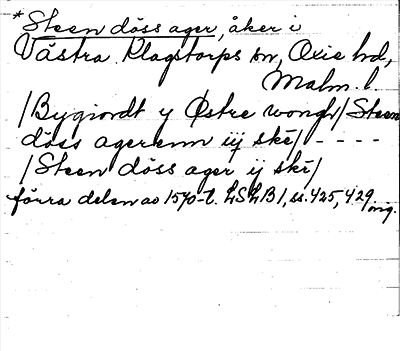 *Steen döss ager, åker i
Västra Klagstorps sn, Oxie hd,
Malm. l.
/Bygiordt y Østre wongh/Steen
döss agerenn iij ske/ - - - -
/Steen döss ager ij ske/
förra delen av 1570-t. LSLB 1, ss. 425, 429
orig.